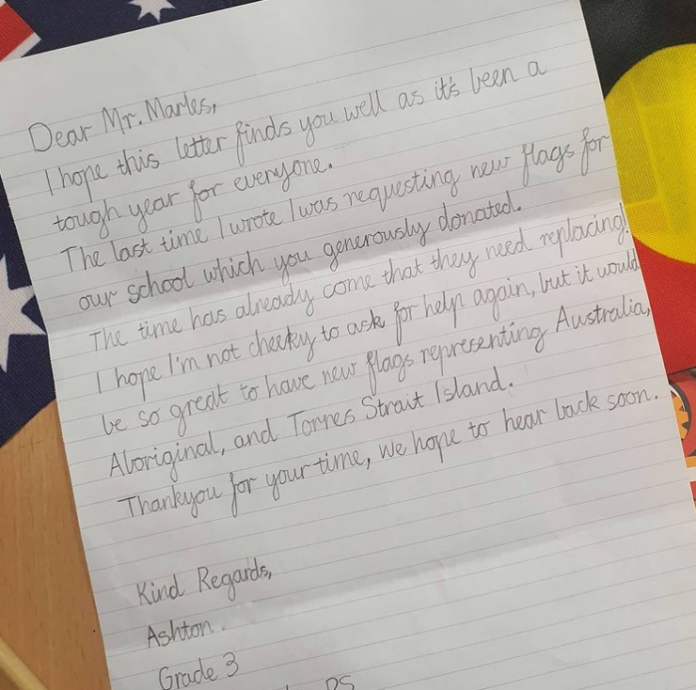 Dear Mr. Marles,
I hope this letter finds you well as it's been a
tough year for everyone.
The last time I wrote I was requesting new flags for
our school which you generously donated.
The time has already come that they need replacing!
I hope I'm not cheeky to ask for help again, but it would
be so great to have new flags representing Australia,
Aboriginal, and Torres Strait Island.
Thankyou for your time, we hope to hear back soon.
Kind Regards,
Ashton.
Grade 3
PS